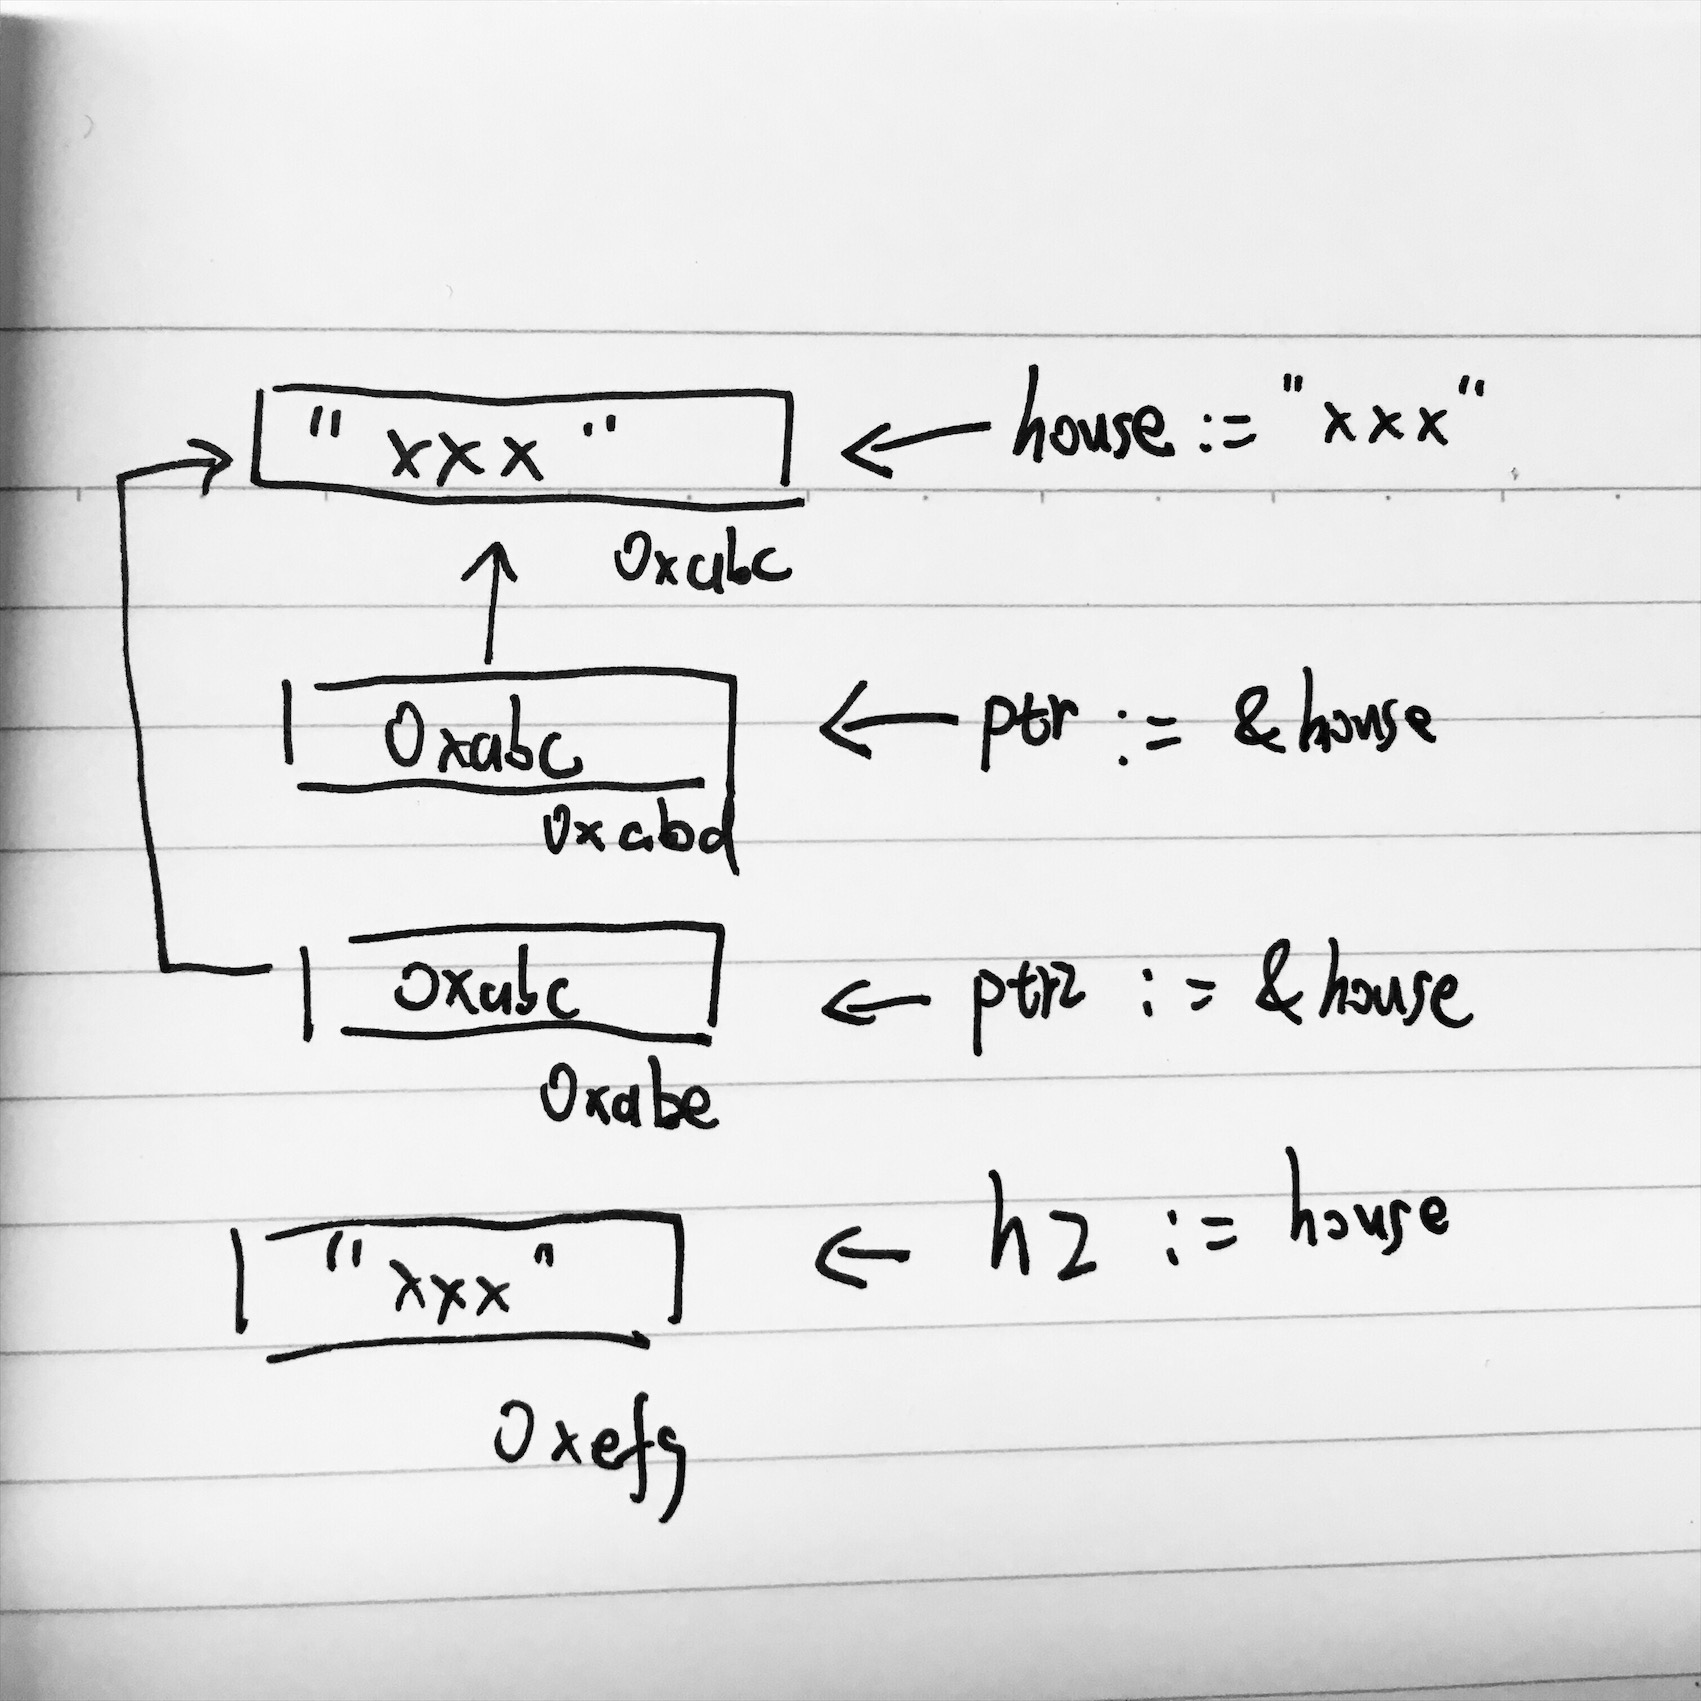 "xxx" ← house := "xxx"
0xabc
0xabc ← ptr := &house
0xabd
0xabc ← ptr2 := &house
0xabe
"xxx" ← h2 := house
0xefg